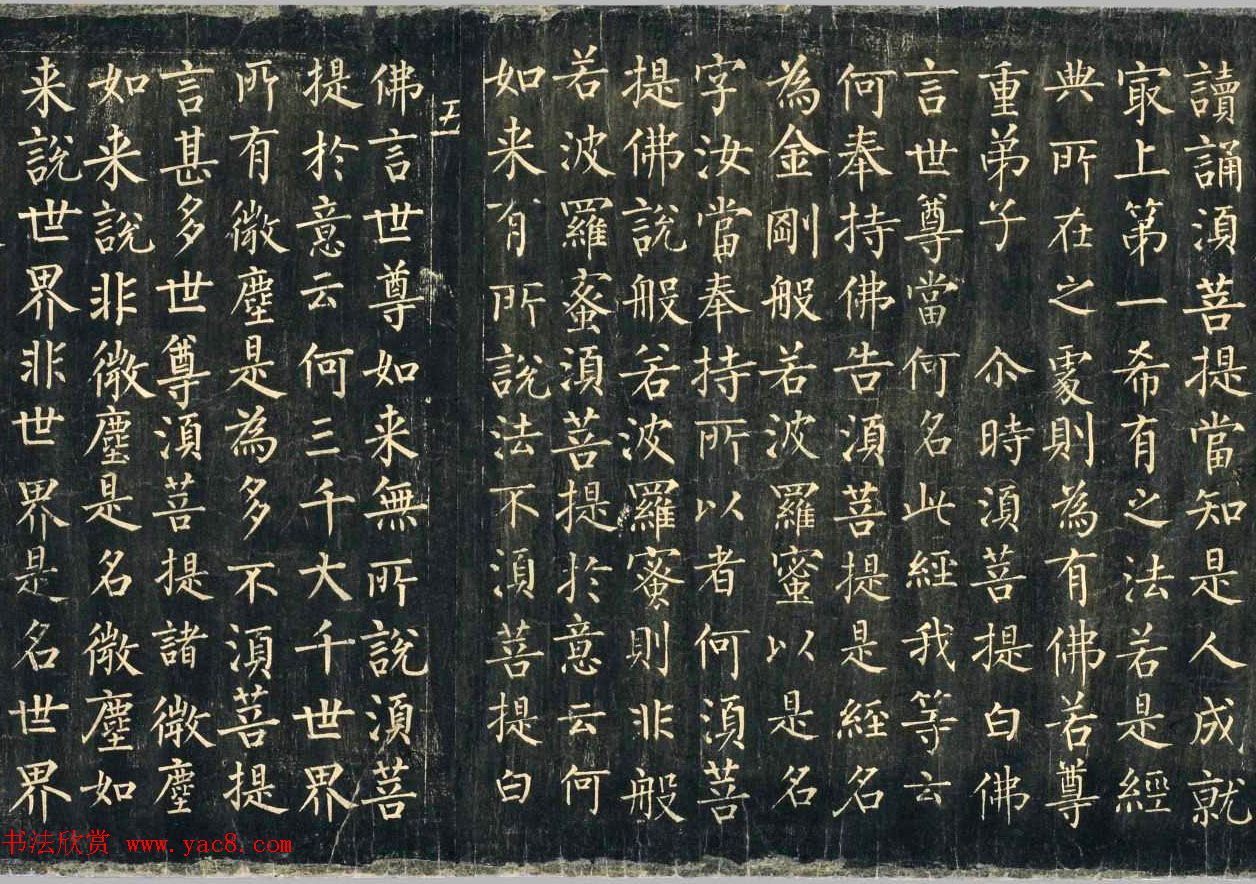 讀誦湏菩提當知是人成就
冣上第一希有之法若是經
典所在之䖏則為有佛若尊
重弟子尒時湏菩提白佛
言世尊當何名此經我等云
何奉持佛告湏菩提是經名
為金剛般若波羅蜜以是名
字汝當奉持所以者何湏菩
提佛說般若波羅蜜則非般
若波羅蜜湏菩提於意云何
如来有所說法不湏菩提白
五
佛言世尊如来無所說湏菩
提於意云何三千大千世界
所有微塵是為多不湏菩提
言甚多世尊湏菩提諸微塵
如来說非微塵是名微塵如
来說世界非世界是名世界
书法欣赏 www.yac8.com